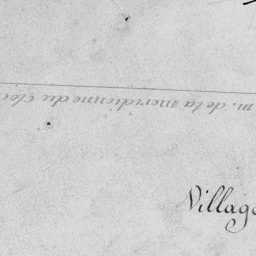 m. de la meridienne du Clo
Village